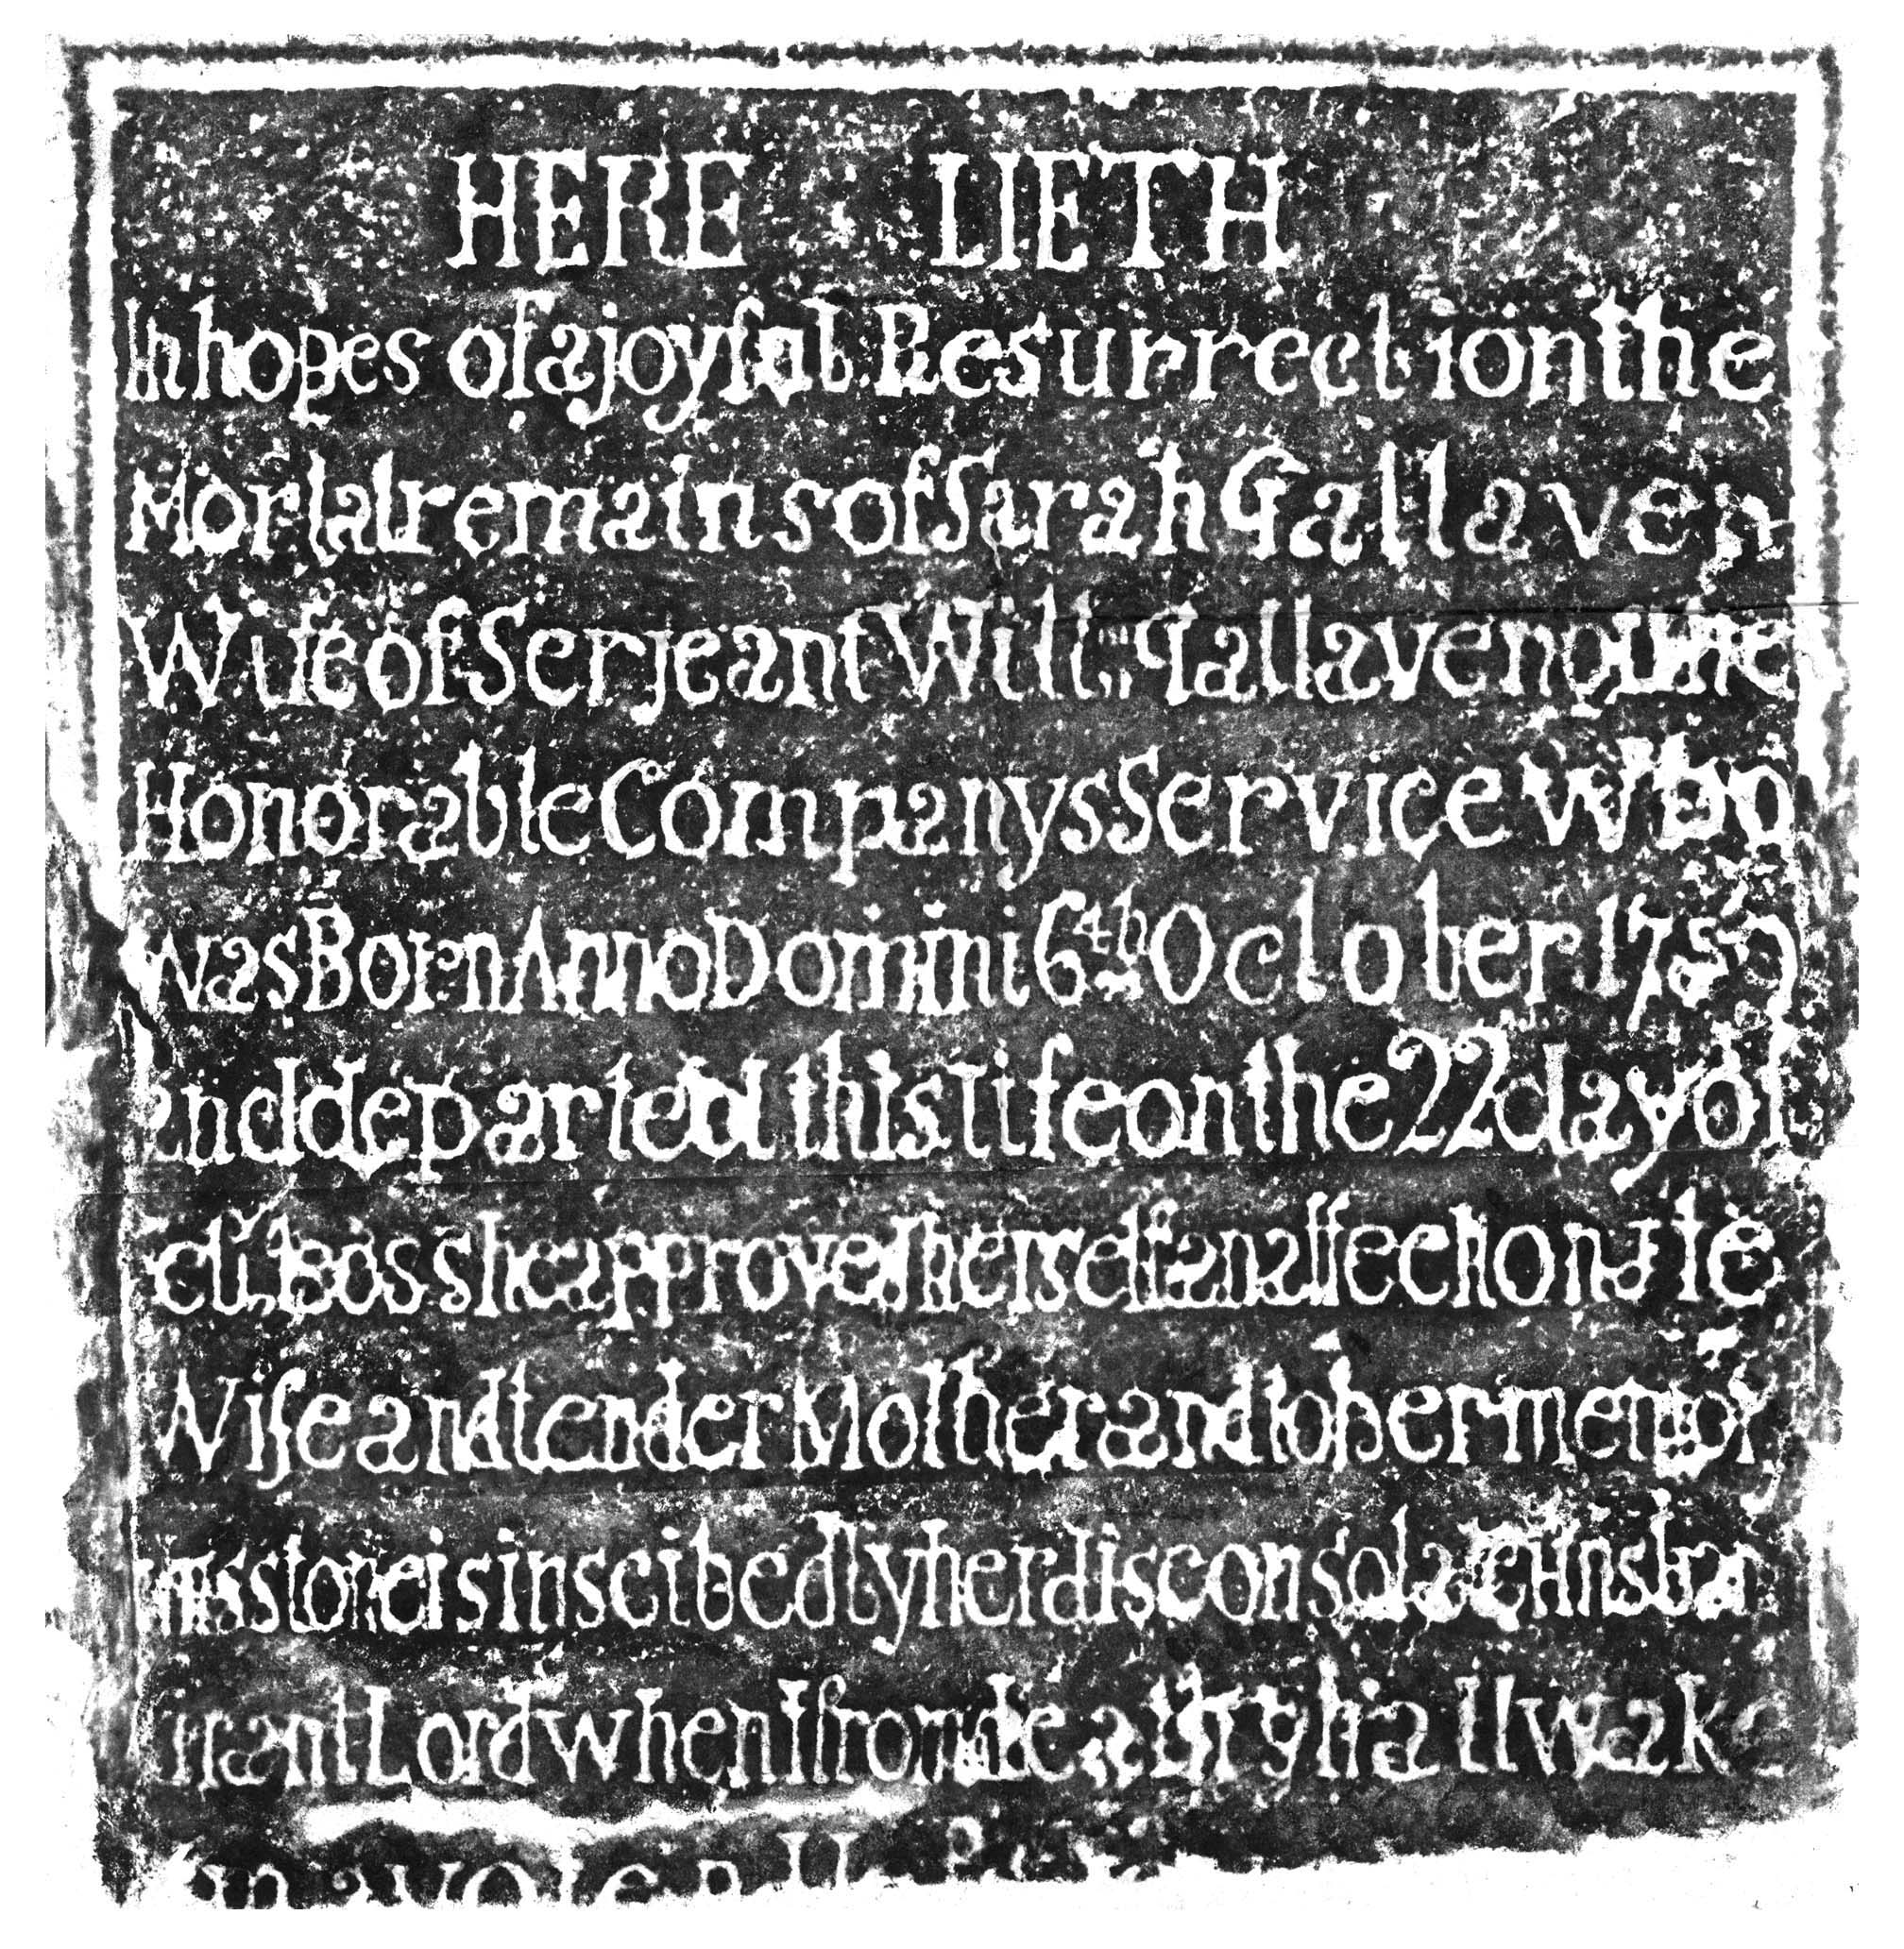 HERE LIETH
In hopes of a joyful Resurrection the
Mortal remains of Sarah Gallaven
Wife of Serjeant Will.m Gallaven in the
Honorable Companys Service who
was Born Anno Domini 6th October 175
and departed this Life on the 22 day of
she approved herself an affectionate
Wife and tender Mother and to her memory
this stone is inscibed by her disconsolate
Grant Lord when I from death shall wake